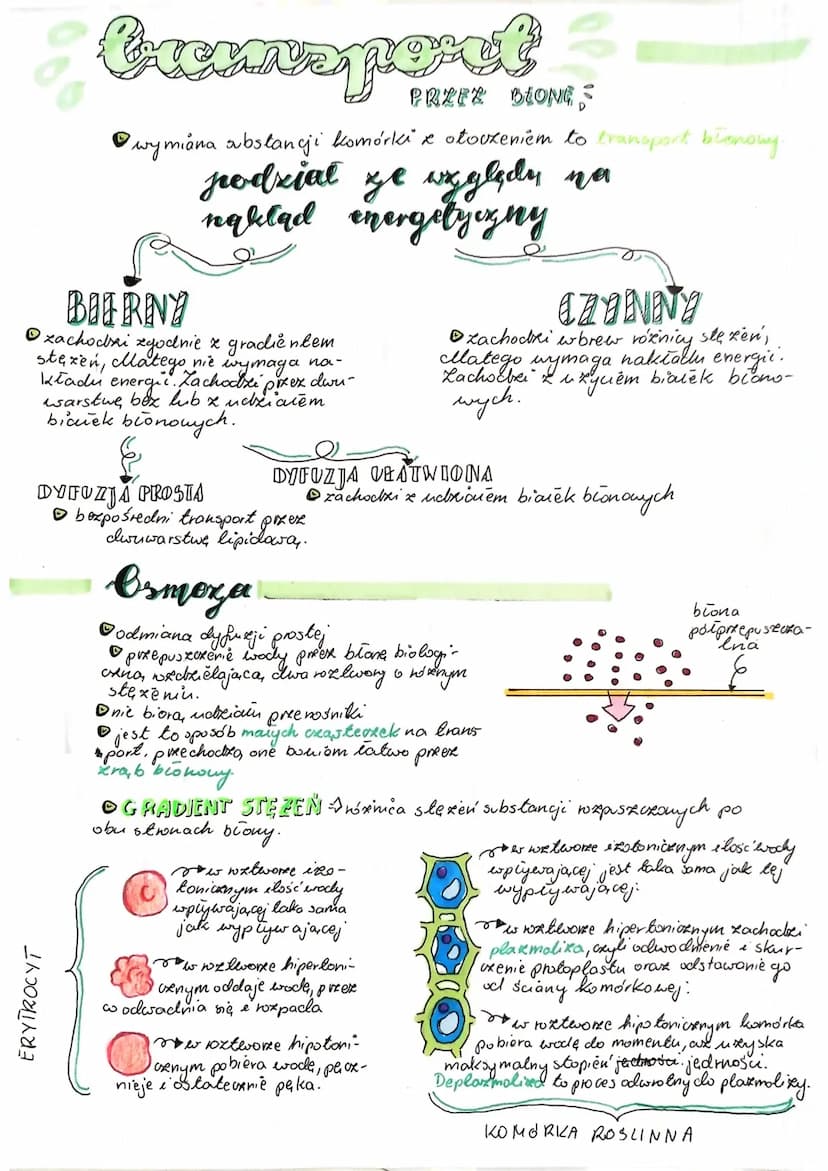 transport
PRZEZ BŁONĘ
wymiana substancji komórki z otoczeniem to transport błonowy.
podział ze względu na
nakład energetyczny
BIERNY
zachodzi zgodnie z gradientem
stężeń, dlatego nie wymaga na-
kładu energii. Zachodzi przez dwu-
warstwę bez lub z udziałem
białek błonowych.
CZYNNY
zachodzi wbrew różnicy stężeń,
dlatego wymaga nakładu energii.
Zachodzi z użyciem białek błono-
wych.
DYFUZJA PROSTA
bezpośredni transport przez
dwuwarstwę lipidową.
DYFUZJA UŁATWIONA
zachodzi z udziałem białek błonowych
Osmoza
odmiana dyfuzji prostej
przepuszczenie wody przez błonę biologi-
czną, rozdzielającą dwa roztwory o różnym
stężeniu.
nie biorą udziału przenośniki
jest to sposób małych cząsteczek na trans
port. przechodzą one bowiem łatwo przez
zrąb błonowy.
błona
półprzepuszcza-
lna
GRADIENT STĘŻEŃ → różnica stężeń substancji rozpuszczonych po
obu stronach błony.
ERYTROCYT
C
w roztworze izo-
tonicznym ilość wody
wpływającej taka sama
jak wypływającej
w roztworze hipertoni-
cznym oddaje wodę, przez
co odwadnia się i rozpada
w roztworze hipotoni-
cznym pobiera wodę, pęcz-
nieje i ostatecznie pęka.
w roztworze izotonicznym ilość wody
wpływającej jest taka sama jak tej
wypływającej.
w roztworze hipertonicznym zachodzi
plazmoliza, czyli odwodnienie i skur-
czenie protoplastu oraz odstawanie go
od ściany komórkowej.
w roztworze hipotonicznym komórka
pobiera wodę do momentu, aż uzyska
maksymalny stopień jedności. jędrności.
Deplazmoliza to proces odwrotny do plazmolizy.
KOMÓRKA ROŚLINNA